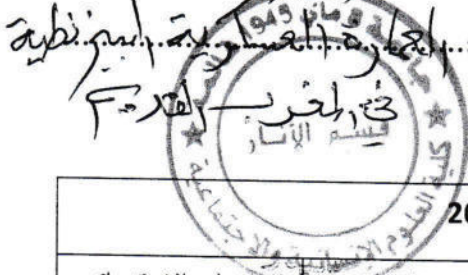 ..العمارة العسكرية البيزنطية
في المغرب القديم
جامعة 8 ماي 1945
قسم الآثار
كلية العلوم الإنسانية والاجتماعية
20